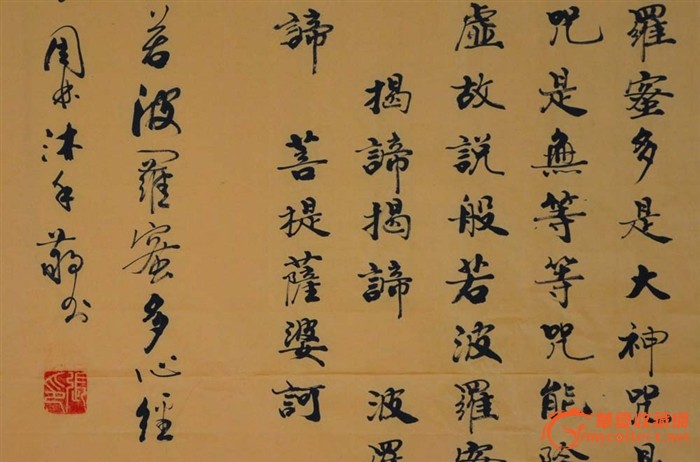 羅蜜多是大神咒是
咒是無等等咒能除
虛故說般若波羅蜜
揭諦揭諦 波羅
諦 菩提薩婆訶
若波羅蜜多心經
沐手敬書